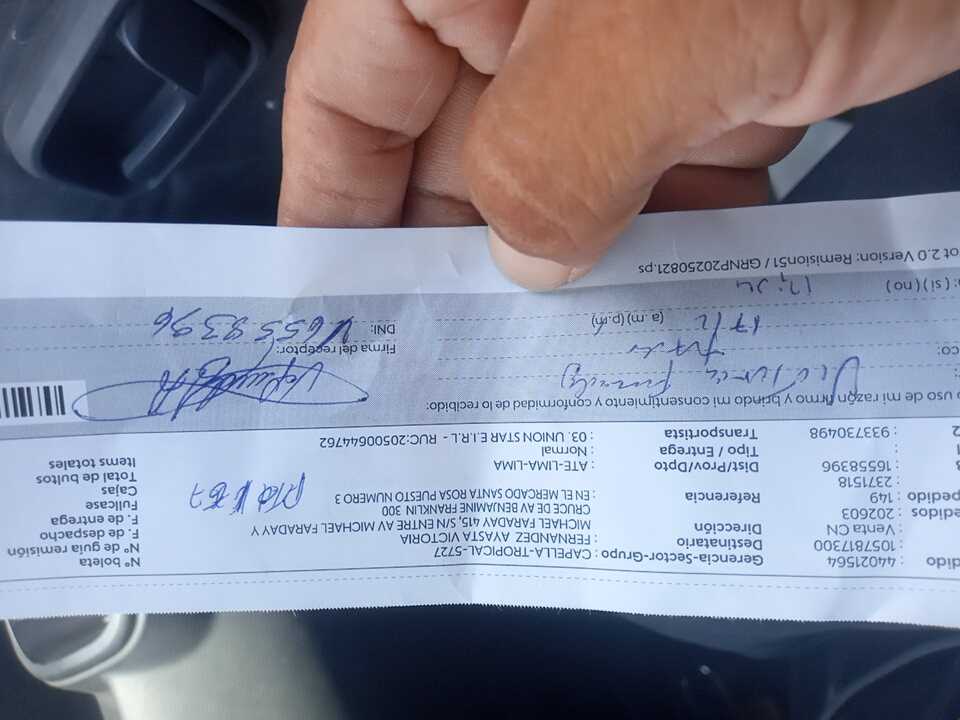 dido : 44021564 Gerencia-Sector-Grupo : CAPELLA-TROPICAL-5727 Nº boleta
: 1057817300 Destinatario : FERNANDEZ AYASTA VICTORIA Nº de guía remisión
: Venta CN Dirección : MICHAEL FARADAY 415, S/N ENTRE AV MICHAEL FARADAY Y F. de despacho
edidos : 202603 CRUCE DE AV BENJAMINE FRANKLIN 300 F. de entrega
pedido : 149 Referencia : EN EL MERCADO SANTA ROSA PUESTO NUMERO 3 Fullcase
: 2371518 Cajas
: 16558396 Dist/Prov/Dpto : ATE-LIMA-LIMA Total de bultos
Tipo / Entrega : Normal Items totales
2 : 933730498 Transportista : 03. UNION STAR E.I.R.L - RUC:20500644762
o uso de mi razón firmo y brindo mi consentimiento y conformidad de lo recibido:
Victoria Fernandez
co: Firma del receptor:
17/2 (a.m) (p.m) DNI: 16558396
: (si) (no)
ot 2.0 Version: Remision51 / GRNP20250821.ps